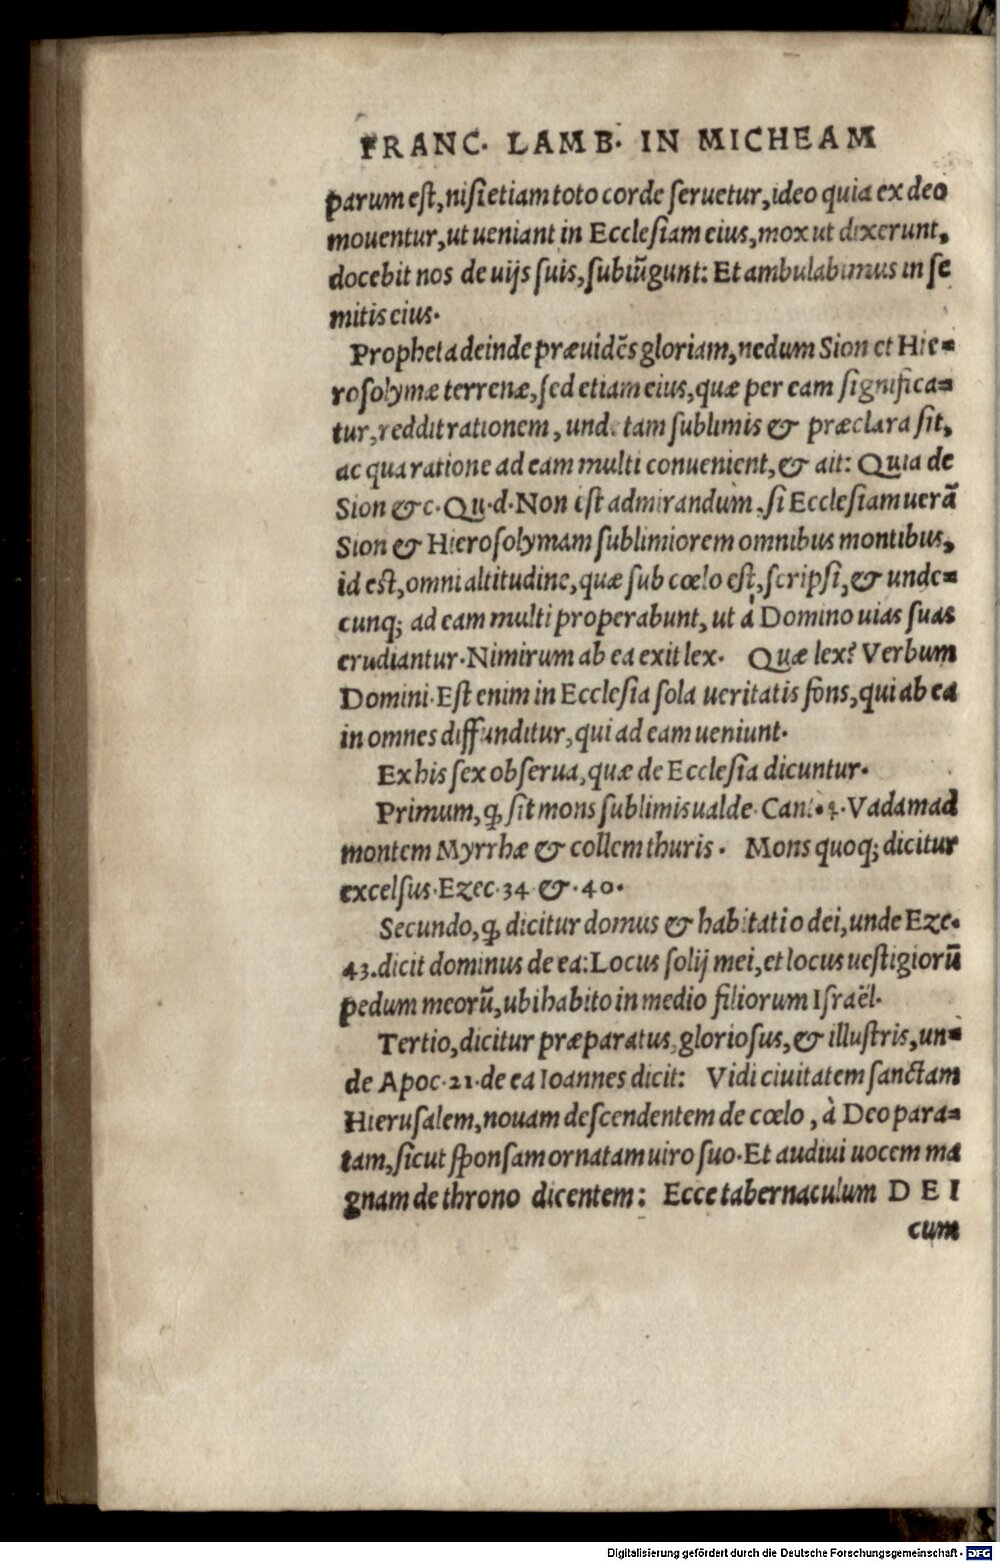 FRANC. LAMB. IN MICHEAM
parum eſt, niſi etiam toto corde ſeruetur, ideo quia ex deo
mouentur, ut ueniant in Eccleſiam eius, mox ut dixerunt,
docebit nos de uijs ſuis, ſubiũgunt: Et ambulabimus in ſe
mitis eius.
Propheta deinde præuidẽs gloriam, nedum Sion et Hie-
roſolymæ terrenæ, ſed etiam eius, quæ per eam ſignifica-
tur, reddit rationem, unde tam ſublimis & præclara ſit,
ac qua ratione ad eam multi conuenient, & ait: Quia de
Sion &c. Qu. d. Non eſt admirandum, ſi Eccleſiam uerã
Sion & Hieroſolymam ſublimiorem omnibus montibus,
id eſt, omni altitudine, quæ ſub cœlo eſt, ſcripſi, & unde-
cunq; ad eam multi properabunt, ut à Domino uias ſuas
erudiantur. Nimirum ab ea exit lex. Quæ lex? Verbum
Domini. Eſt enim in Eccleſia ſola ueritatis fons, qui ab ea
in omnes diffunditur, qui ad eam ueniunt.
Ex his ſex obſerua, quæ de Eccleſia dicuntur.
Primum, ꝙ ſit mons ſublimis ualde. Cant. 4. Vadam ad
montem Myrrhæ & collem thuris. Mons quoq; dicitur
excelſus. Ezec. 34 &. 40.
Secundo, ꝙ dicitur domus & habitatio dei, unde Eze.
43. dicit dominus de ea: Locus ſolij mei, et locus ueſtigiorũ
pedum meorũ, ubi habito in medio filiorum Iſraël.
Tertio, dicitur præparatus, glorioſus, & illuſtris, un-
de Apoc. 21. de ea Ioannes dicit: Vidi ciuitatem ſanctam
Hieruſalem, nouam deſcendentem de cœlo, à Deo para-
tam, ſicut ſponſam ornatam uiro ſuo. Et audiui uocem ma
gnam de throno dicentem: Ecce tabernaculum DEI
cum
Digitalisierung gefördert durch die Deutsche Forschungsgemeinschaft - DFG